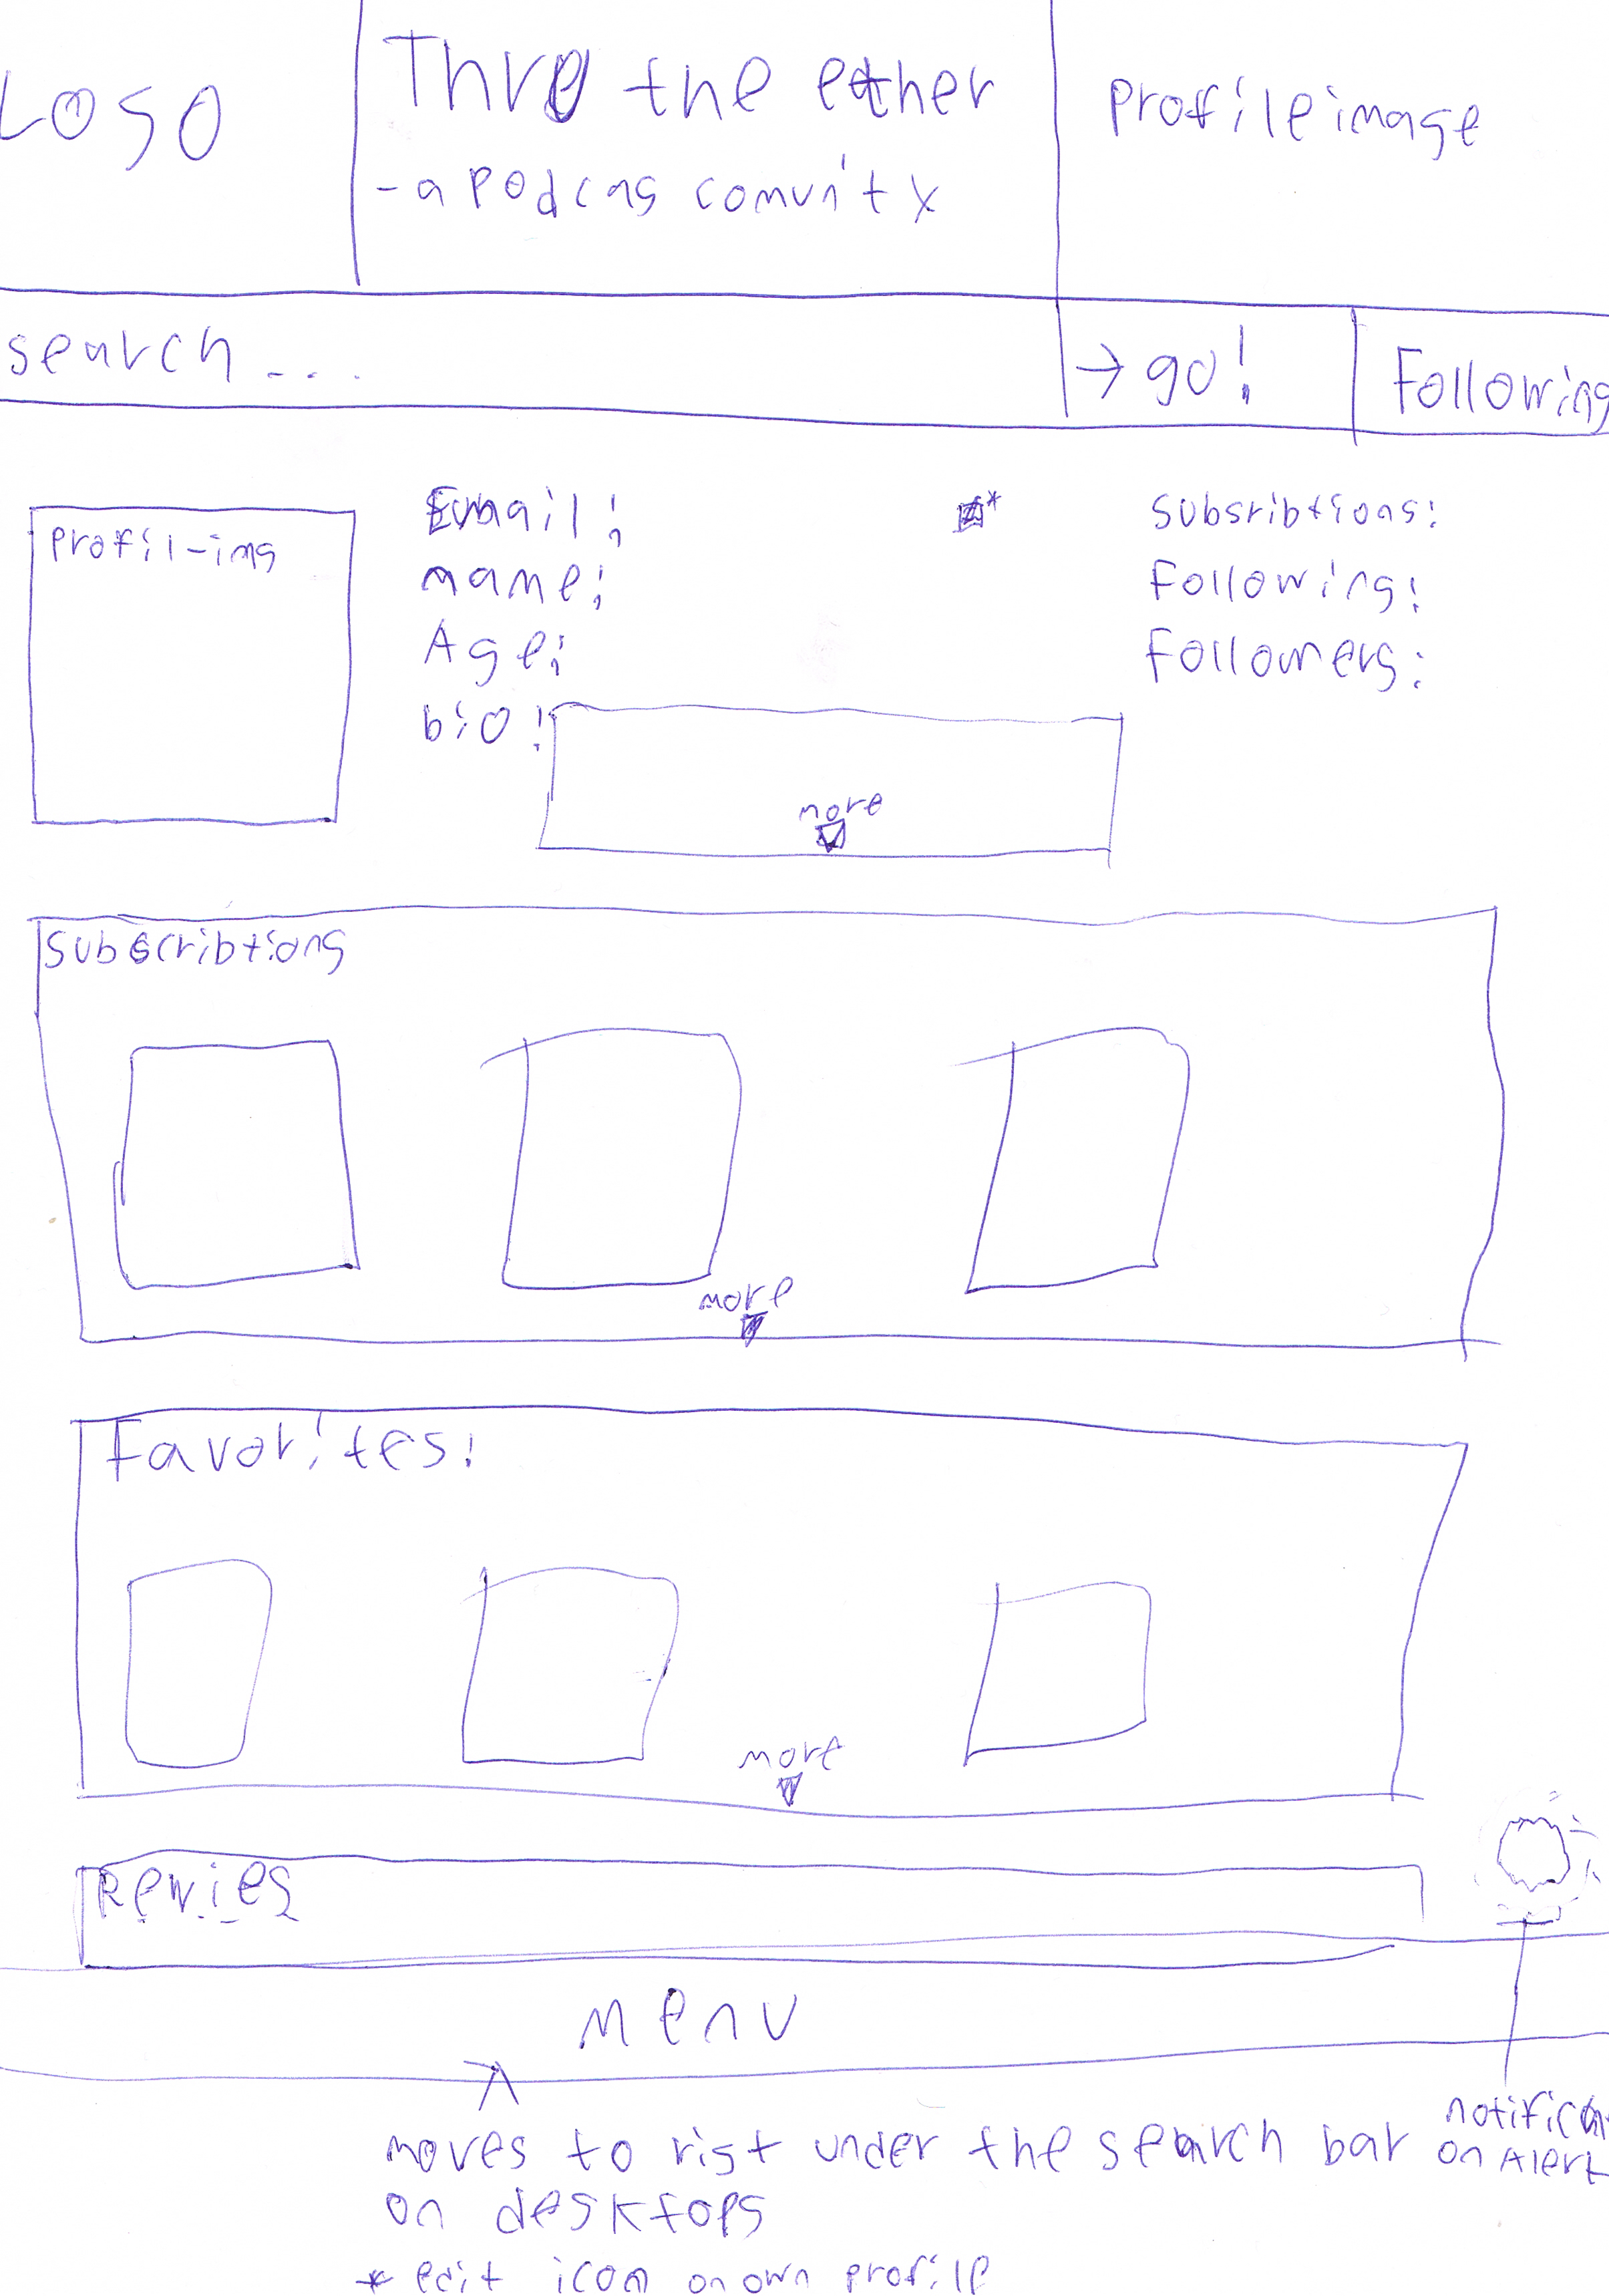 LOGO
Thro the eather
- a Podcas comunity
Profile image
search ...
→ go!
Following
Profil-img
Email:
name:
Age:
bio:
more
*
Subsribtions:
Following:
Followers:
Subscribtions
more
Favorites:
more
Revies
menu
moves to rigt under the search bar
on desktops
notification
on Alert
* edit icon on own profile